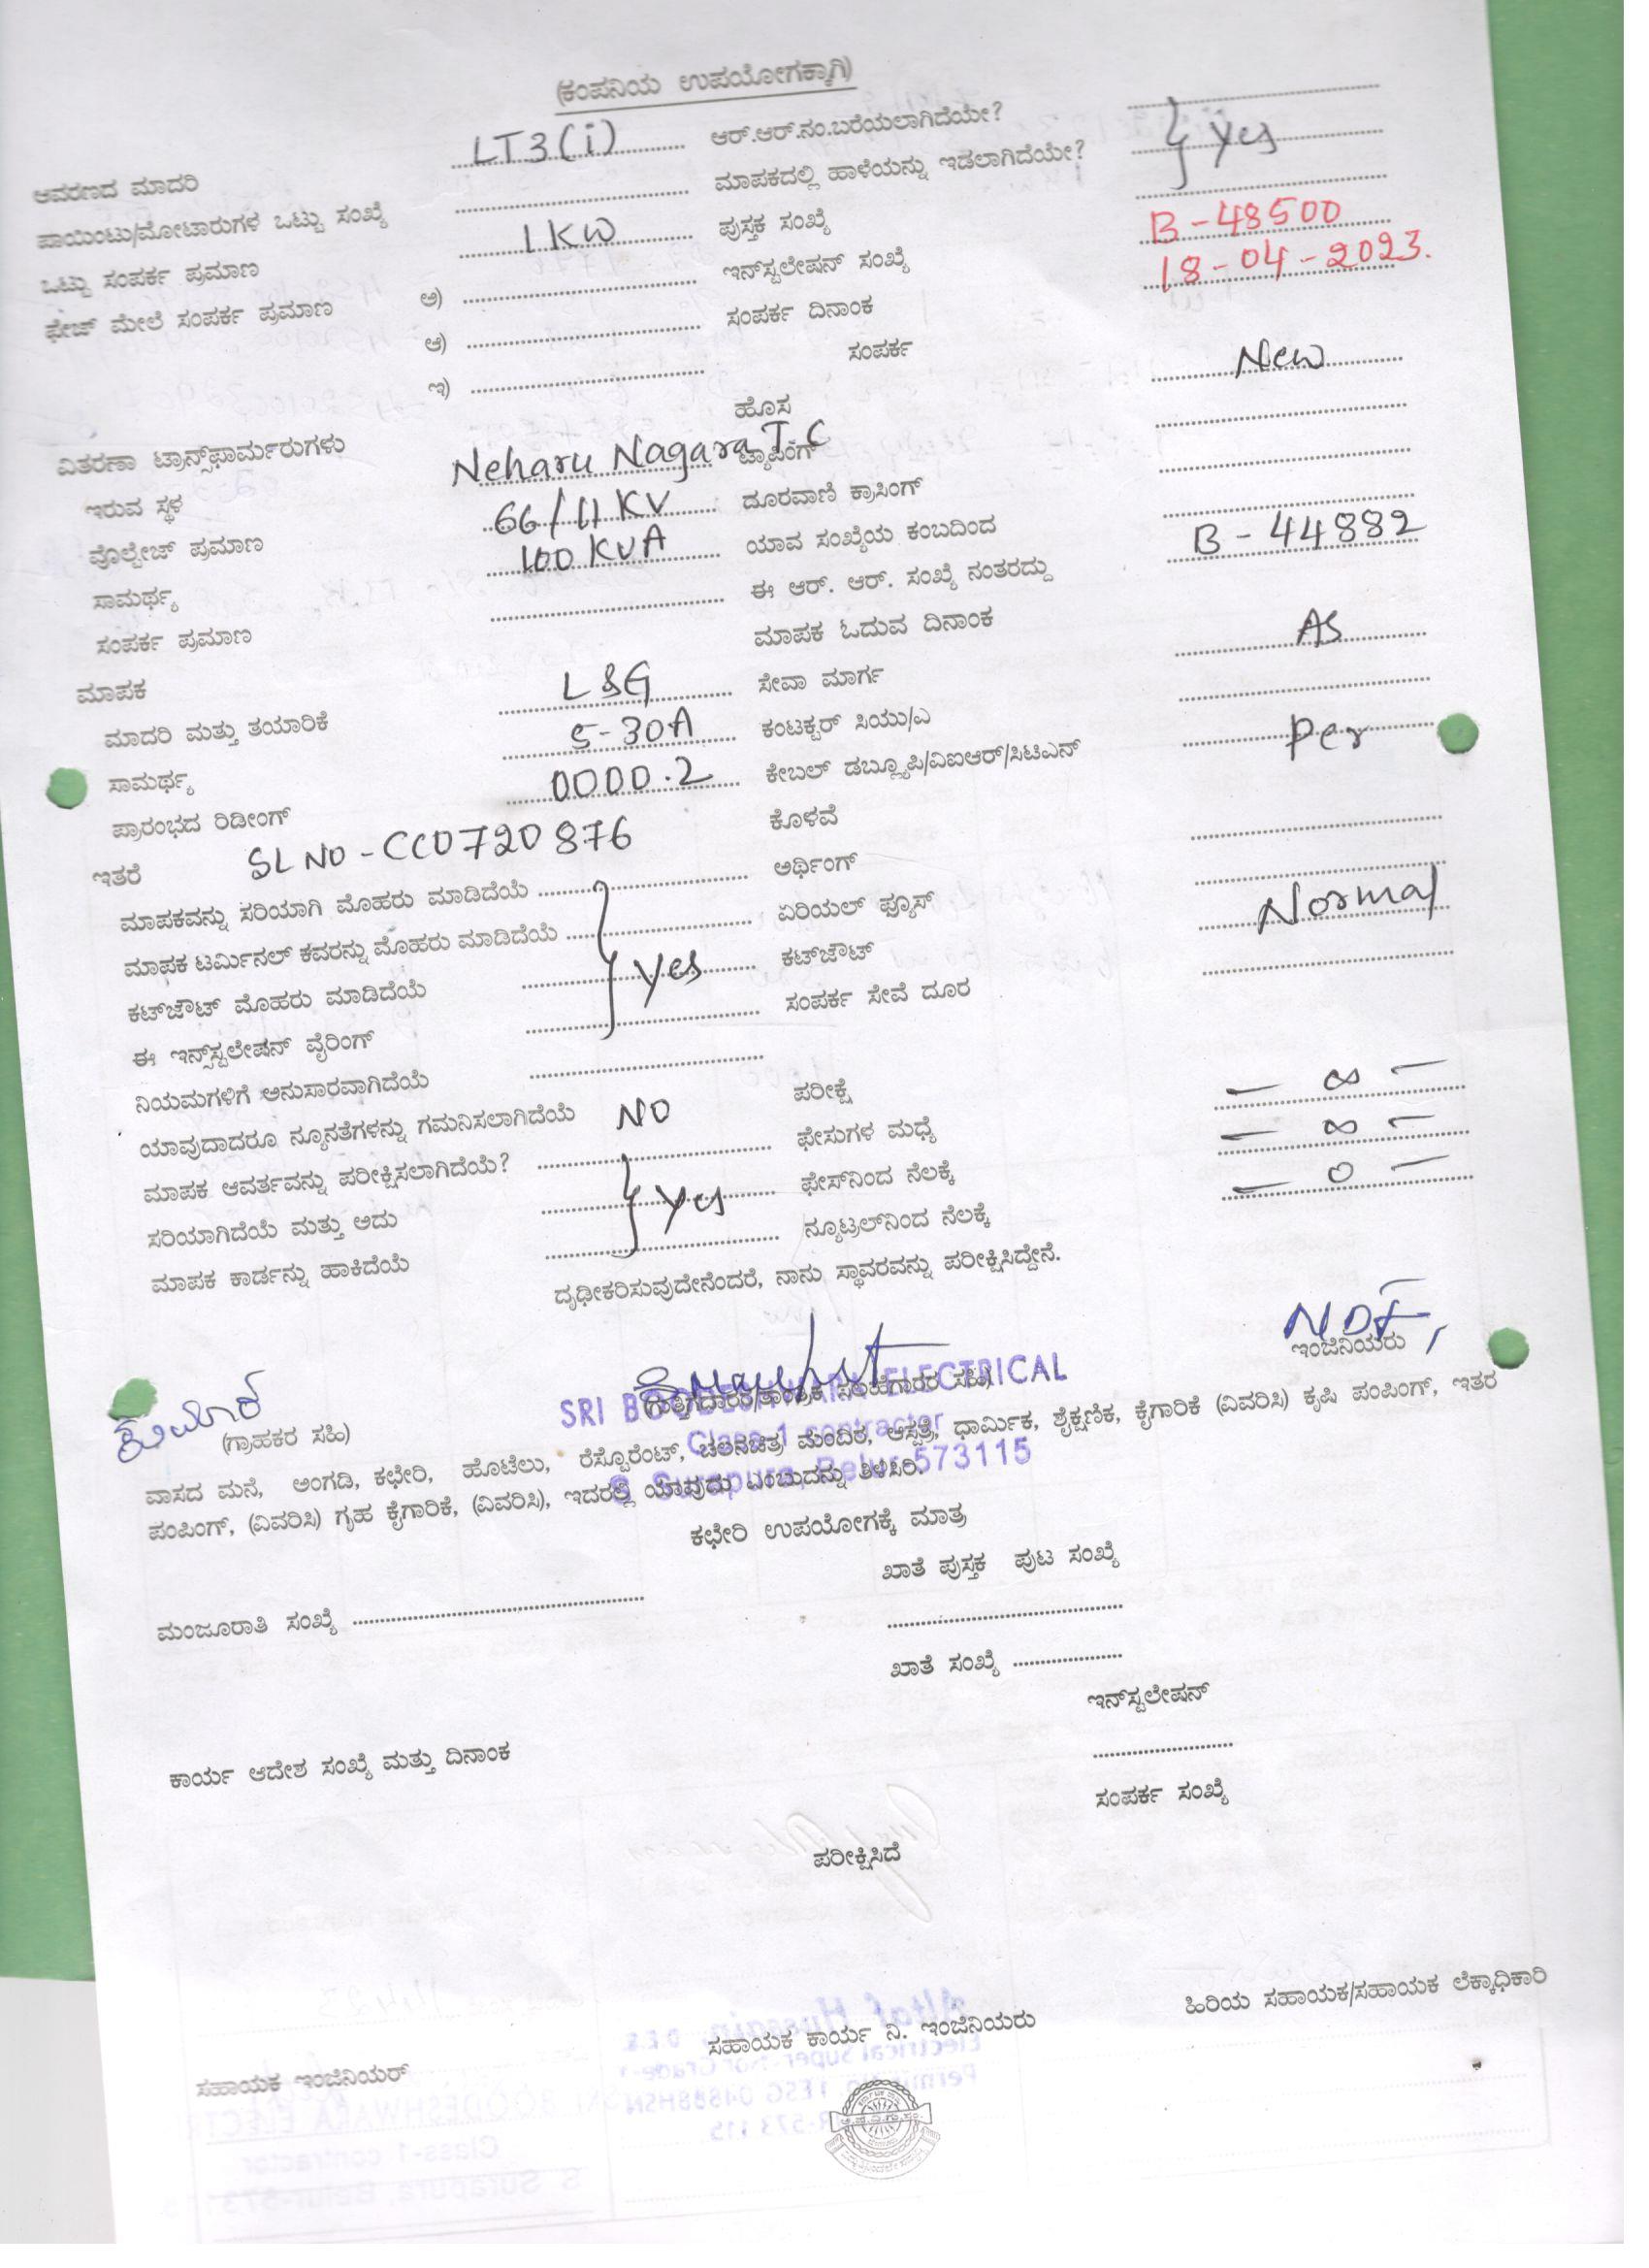 (ಕಂಪನಿಯ ಉಪಯೋಗಕ್ಕಾಗಿ)
ಆವರಣದ ಮಾದರಿ LT3(i) ಆರ್.ಆರ್.ನಂ.ಬರೆಯಲಾಗಿದೆಯೇ?
ಪಾಯಿಂಟು/ಮೋಟಾರುಗಳ ಒಟ್ಟು ಸಂಖ್ಯೆ ಮಾಪಕದಲ್ಲಿ ಹಾಳೆಯನ್ನು ಇಡಲಾಗಿದೆಯೇ? Yes
ಒಟ್ಟು ಸಂಪರ್ಕ ಪ್ರಮಾಣ 1KW ಪುಸ್ತಕ ಸಂಖ್ಯೆ
ಫೇಜ್ ಮೇಲೆ ಸಂಪರ್ಕ ಪ್ರಮಾಣ ಅ) ಇನ್‌ಸ್ಟಲೇಷನ್ ಸಂಖ್ಯೆ B-48500
ಆ) ಸಂಪರ್ಕ ದಿನಾಂಕ 18-04-2023.
ಇ) ಸಂಪರ್ಕ
ಹೊಸ New
ವಿತರಣಾ ಟ್ರಾನ್ಸ್‌ಫಾರ್ಮರುಗಳು
ಇರುವ ಸ್ಥಳ Neharu Nagara T.C ಟ್ಯಾಪಿಂಗ್
ವೊಲ್ಟೇಜ್ ಪ್ರಮಾಣ 66/11 KV ದೂರವಾಣಿ ಕ್ರಾಸಿಂಗ್
ಸಾಮರ್ಥ್ಯ 100 KVA ಯಾವ ಸಂಖ್ಯೆಯ ಕಂಬದಿಂದ
ಸಂಪರ್ಕ ಪ್ರಮಾಣ ಈ ಆರ್. ಆರ್. ಸಂಖ್ಯೆ ನಂತರದ್ದು B-44882
ಮಾಪಕ ಮಾಪಕ ಓದುವ ದಿನಾಂಕ
ಮಾದರಿ ಮತ್ತು ತಯಾರಿಕೆ L&G ಸೇವಾ ಮಾರ್ಗ AS
ಸಾಮರ್ಥ್ಯ 5-30A ಕಂಟಕ್ಟರ್ ಸಿಯು/ಎ
ಪ್ರಾರಂಭದ ರಿಡೀಂಗ್ 0000.2 ಕೇಬಲ್ ಡಬ್ಲ್ಯೂಪಿ/ವಿಐಆರ್/ಸಿಟಿಎನ್ Per
ಇತರೆ SL NO-CC0720876 ಕೊಳವೆ
ಮಾಪಕವನ್ನು ಸರಿಯಾಗಿ ಮೊಹರು ಮಾಡಿದೆಯೆ ಅರ್ಥಿಂಗ್
ಮಾಪಕ ಟರ್ಮಿನಲ್ ಕವರನ್ನು ಮೊಹರು ಮಾಡಿದೆಯೆ ಏರಿಯಲ್ ಫ್ಯೂಸ್
ಕಟ್‌ಔಟ್ ಮೊಹರು ಮಾಡಿದೆಯೆ Yes ಕಟ್‌ಔಟ್ Normal
ಈ ಇನ್ಸ್‌ಸ್ಟಲೇಷನ್ ವೈರಿಂಗ್ ಸಂಪರ್ಕ ಸೇವೆ ದೂರ
ನಿಯಮಗಳಿಗೆ ಅನುಸಾರವಾಗಿದೆಯೆ
ಯಾವುದಾದರೂ ನ್ಯೂನತೆಗಳನ್ನು ಗಮನಿಸಲಾಗಿದೆಯೆ NO ಪರೀಕ್ಷೆ
ಮಾಪಕ ಆವರ್ತವನ್ನು ಪರೀಕ್ಷಿಸಲಾಗಿದೆಯೆ? ಫೇಸುಗಳ ಮಧ್ಯೆ — ∞ —
ಸರಿಯಾಗಿದೆಯೆ ಮತ್ತು ಅದು Yes ಫೇಸ್‌ನಿಂದ ನೆಲಕ್ಕೆ — ∞ —
ಮಾಪಕ ಕಾರ್ಡನ್ನು ಹಾಕಿದೆಯೆ ನ್ಯೂಟ್ರಲ್‌ನಿಂದ ನೆಲಕ್ಕೆ — 0 —
ದೃಢೀಕರಿಸುವುದೇನೆಂದರೆ, ನಾನು ಸ್ಥಾವರವನ್ನು ಪರೀಕ್ಷಿಸಿದ್ದೇನೆ.
ಇಂಜಿನಿಯರು
ಕುಮಾರ
(ಗ್ರಾಹಕರ ಸಹಿ)
SRI BOODESHWARA ELECTRICAL
Class-1 contractor
S. Surapura, Belur-573115
ವಾಸದ ಮನೆ, ಅಂಗಡಿ, ಕಛೇರಿ, ಹೊಟೆಲು, ರೆಸ್ಟೊರೆಂಟ್, ಚಲನಚಿತ್ರ ಮಂದಿರ, ಆಸ್ಪತ್ರೆ, ಧಾರ್ಮಿಕ, ಶೈಕ್ಷಣಿಕ, ಕೈಗಾರಿಕೆ (ವಿವರಿಸಿ) ಕೃಷಿ ಪಂಪಿಂಗ್, ಇತರ
ಪಂಪಿಂಗ್, (ವಿವರಿಸಿ) ಗೃಹ ಕೈಗಾರಿಕೆ, (ವಿವರಿಸಿ), ಇದರಲ್ಲಿ ಯಾವುದು ಎಂಬುದನ್ನು ತಿಳಿಸಿರಿ.
ಕಛೇರಿ ಉಪಯೋಗಕ್ಕೆ ಮಾತ್ರ
ಖಾತೆ ಪುಸ್ತಕ ಪುಟ ಸಂಖ್ಯೆ
ಮಂಜೂರಾತಿ ಸಂಖ್ಯೆ
ಖಾತೆ ಸಂಖ್ಯೆ
ಇನ್‌ಸ್ಟಲೇಷನ್
ಕಾರ್ಯ ಆದೇಶ ಸಂಖ್ಯೆ ಮತ್ತು ದಿನಾಂಕ
ಸಂಪರ್ಕ ಸಂಖ್ಯೆ
ಪರೀಕ್ಷಿಸಿದೆ
ಸಹಾಯಕ ಇಂಜಿನಿಯರ್ ಸಹಾಯಕ ಕಾರ್ಯ ನಿ. ಇಂಜಿನಿಯರು ಹಿರಿಯ ಸಹಾಯಕ/ಸಹಾಯಕ ಲೆಕ್ಕಾಧಿಕಾರಿ